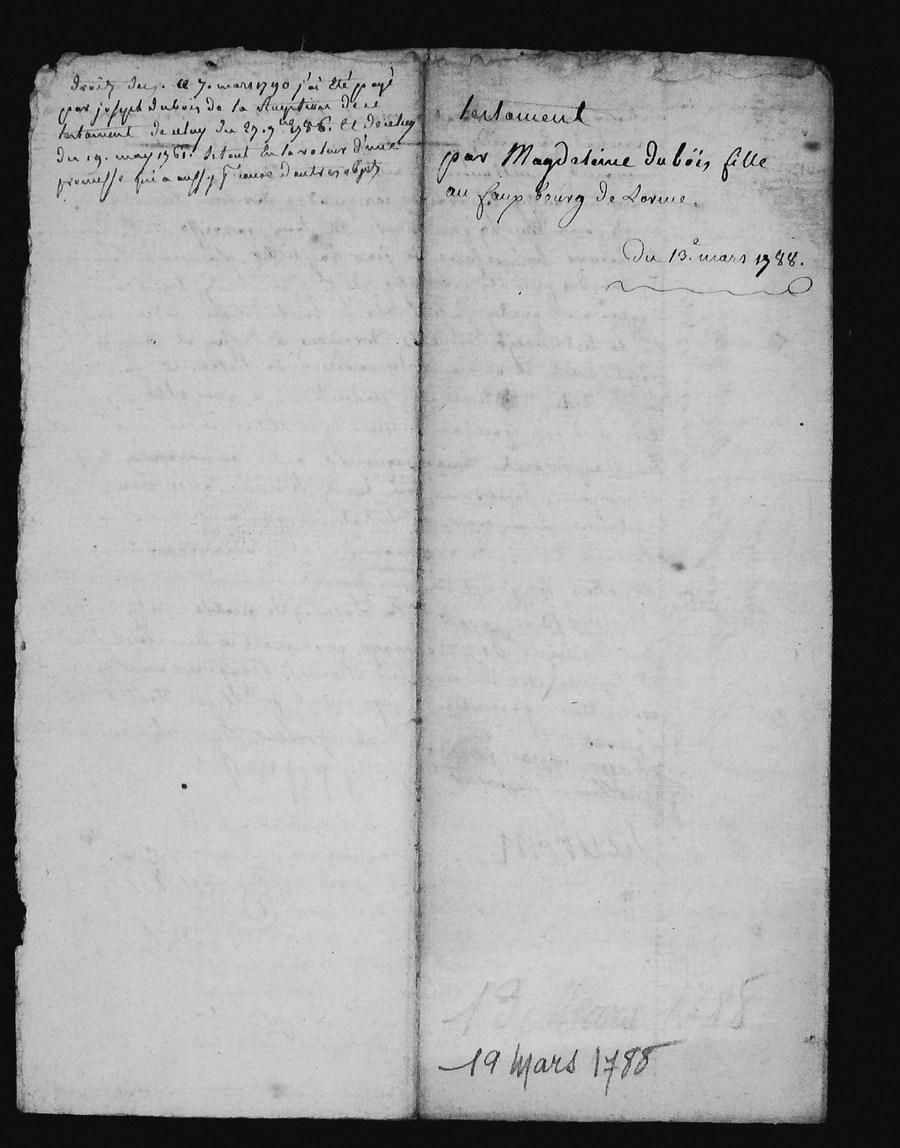 droits du . le 7. mars 1790 j'ai été payé
par joseph dubois de la Reception de ce
testament de celuy du 27. 9.re 1786. et de celuy
du 19. may 1761. Le tout en la valeur d'une
promesse qui a aussy cause d'autres objets
testament
par Magdeleine dubois, fille
au fauxbourg de Lorme.
Du 13.e mars 1788.
13 Mars 1788
19 Mars 1788